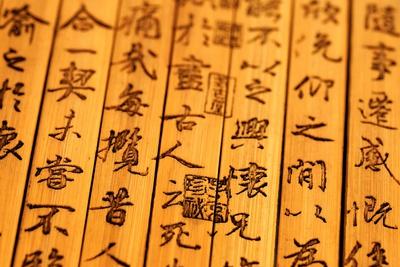 隨事遷感慨
欣俛仰之間以為
能不以之興懷況
於盡古人云死
痛哉每攬昔人
合一契未嘗不
喻之於懷